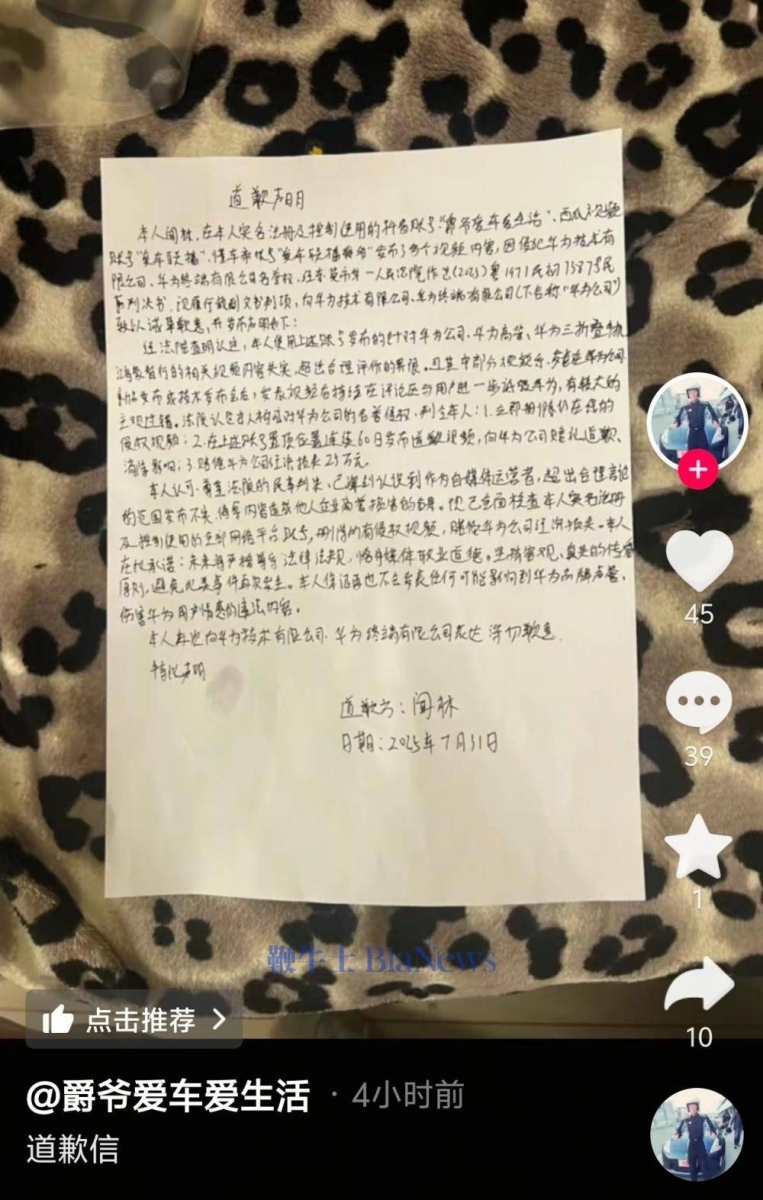 道歉声明
本人闻林,在本人实名注册及控制使用的抖音账号“爵爷爱车爱生活”、西瓜视频
账号“爱车联播”、懂车帝账号“爱车联播 ”发布了多个视频内容,因侵犯华为技术有
限公司、华为终端有限公司名誉权,经东莞市第一人民法院作出(2025)粤1971民初 号民
事判决书,现履行裁判文书判项,向华为技术有限公司、华为终端有限公司(下合称“华为公司”)
致以诚挚歉意,并发布声明如下:
经法院查明认定,本人使用上述账号发布的针对华为公司、华为高管、华为三折叠手机、
鸿蒙智行的相关视频内容失实,超出合理评价的界限。且其中部分视频 华为公司
新品发布或技术发布会后,发表视频后持续在评论区与用户进一步诋毁华为,有较大的
主观过错。法院认定本人构成对华为公司的名誉侵权,判令本人:1.立即删除仍在线的
侵权视频;2.在上述账号置顶位置连续60日发布道歉视频,向华为公司赔礼道歉、
消除影响;3.赔偿华为公司经济损失 万元。
本人认可、尊重法院的民事判决,已深刻认识到作为自媒体运营者,超出合理言论
的范围发布不实、侮辱内容造成他人企业商誉损害的 。现已全面核查本人实名注册
及控制使用的全部网络平台账号,删除所有侵权视频,赔偿华为公司经济损失。本人
在此承诺:未来将严格遵守法律法规,恪守媒体职业道德。坚持客观、真实的传播
原则,避免此类事件再次发生。本人保证再也不会发表任何可能影响到华为品牌声誉、
伤害华为用户情感的违法内容。
本人再次向华为技术有限公司、华为终端有限公司表达深切歉意。
特此声明
道歉方:闻林
日期:2025年7月31日
鞭牛士 BiaNews
45
39
1
10
点击推荐
@爵爷爱车爱生活 · 4小时前
道歉信